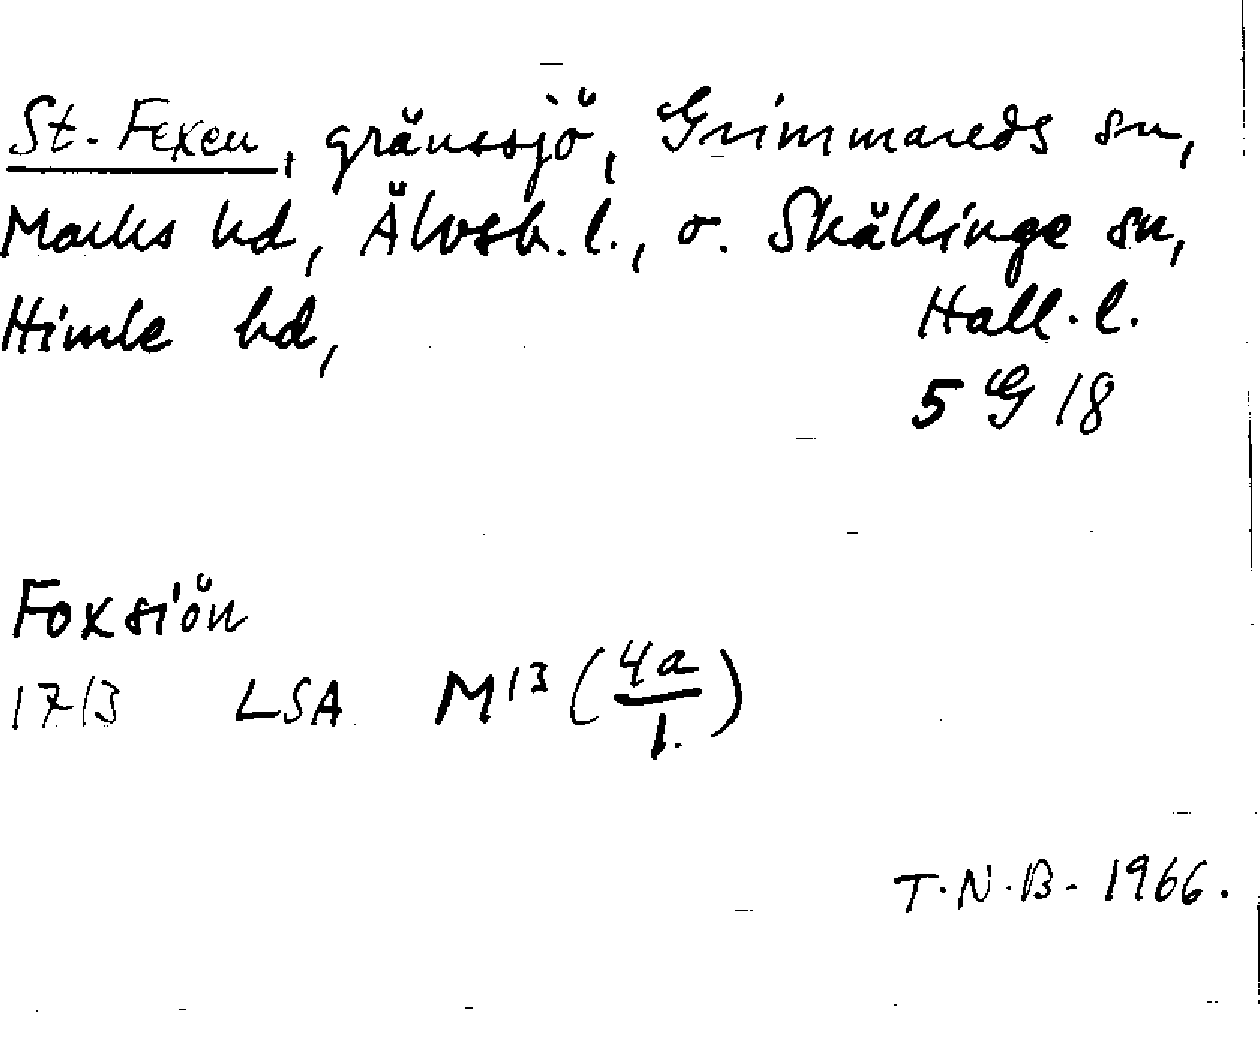 St. Fexen, gränssjö, Grimmareds sn,
Marks hd, Älvsb. l., o. Skällinge sn,
Himle hd, Hall. l.
5 G 18
Foxsiön
1713 LSA M13 (4a/1.)
T.N.B. 1966.